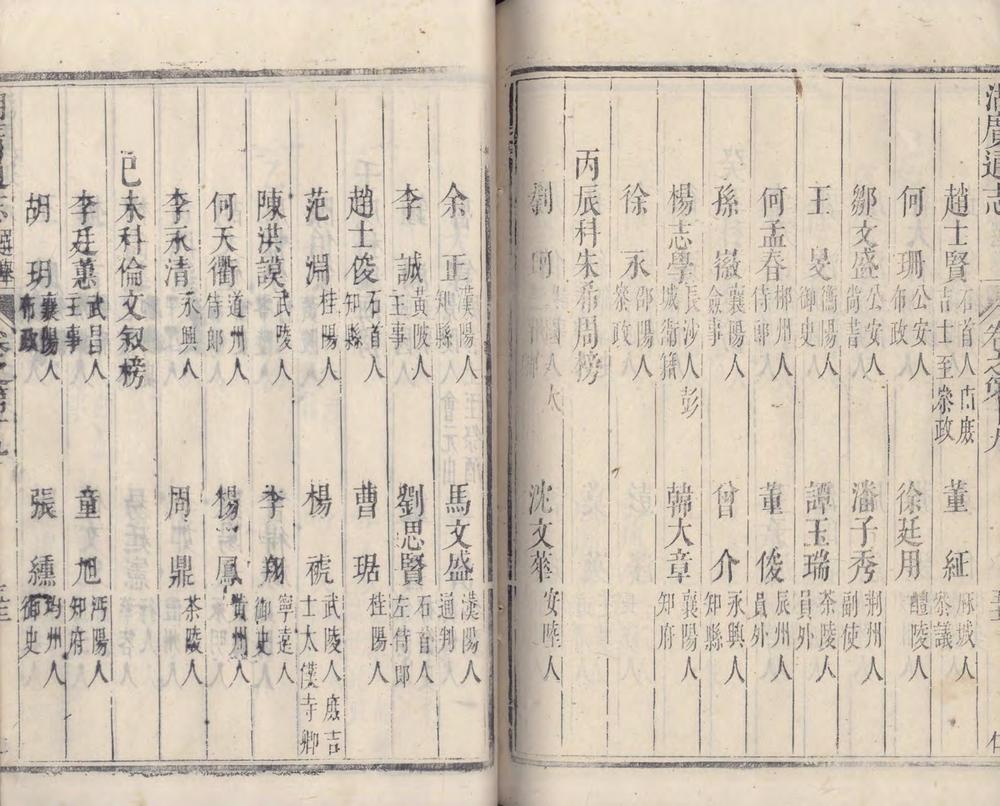 趙士賢 石首人 庶吉士至叅政
董 紝 麻城人 叅議
何 珊 公安人 布政
徐廷用 醴陵人
鄒文盛 公安人 尚書
潘子秀 荆州人 副使
王 旻 衡陽人 御史
譚玉瑞 茶陵人 員外
何孟春 郴州人 侍郎
董 俊 辰州人 員外
孫 襄陽人 僉事
曾 介 永興人 知縣
楊志學 長沙人 彭城衛籍
韓大章 襄陽人 知府
徐 永 邵陽人 叅政
丙辰科朱希周榜
劉
沈文華 安陸人
余 正 漢陽人 知縣
馬文盛 漢陽人 通判
李 誠 黃陂人 主事
劉思賢 石首人 左侍郎
趙士俊 石首人 知縣
曹 琚 桂陽人
范 淵 桂陽人
楊 褫 武陵人 庶吉士太僕寺卿
陳洪謨 武陵人
李 翔 寧遠人 御史
何天衢 道州人 侍郎
楊 鳳 黃州人
李永清 永興人
周 鼎 茶陵人
己未科倫文叙榜
李廷蕙 武昌人 主事
童 旭 沔陽人 知府
胡 玥 襄陽人 布政
張 纁 均州人 御史